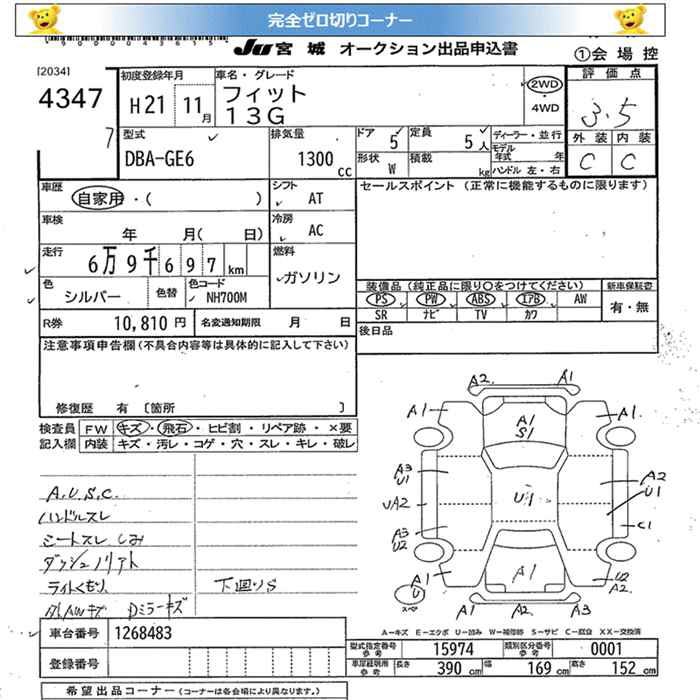 完全ゼロ切りコーナー
JU 宮城 オークション出品申込書
①会場控
[2034]
4347
7
初度登録年月
H21 11月
車名・グレード
フィット
13G
2WD
・
4WD
評価点
3.5
外装 内装
C C
型式
DBA-GE6
排気量
1300 cc
ドア 5
定員 5人
形状 W
積載 kg
ディーラー・並行
モデル年式 年
ハンドル 左・右
車歴
自家用・( )
シフト
AT
セールスポイント (正常に機能するものに限ります)
車検
年 月( 日)
冷房
AC
走行
6万9千697km
燃料
ガソリン
色
シルバー
色替
色コード
NH700M
装備品 (純正品に限り〇をつけてください)
新車保証書
PS PW ABS エアB AW
SR ナビ TV カワ
有・無
R券 10,810 円
名変通知期限 月 日
後日品
注意事項申告欄 (不具合内容等は具体的に記入して下さい)
修復歴 有 〔箇所 〕
検査員 FW キズ・飛石・ヒビ割・リペア跡・×要
記入欄 内装 キズ・汚レ・コゲ・穴・スレ・キレ・破レ
A.U.S.C.
ハンドルスレ
シートスレ しみ
ダッシュノリアト
ライトくもり 下回りS
AWキズ Dミラーキズ
A2 A1
A1 A1 A1
S1
A3 A2
U1 U1 U1
UA2
A3 C1
U2
A1 A1 U2
A2
U
スペア
A1 A2 A3
A―キズ E―エクボ U―凹み W―補修跡 S―サビ C―腐食 XX―交換済
車台番号 1268483
登録番号
型式指定番号 参考 15974
類別区分番号 参考 0001
車庫証明用 参考 長さ 390 cm 幅 169 cm 高さ 152 cm
希望出品コーナー (コーナーは各会場により異なります。)